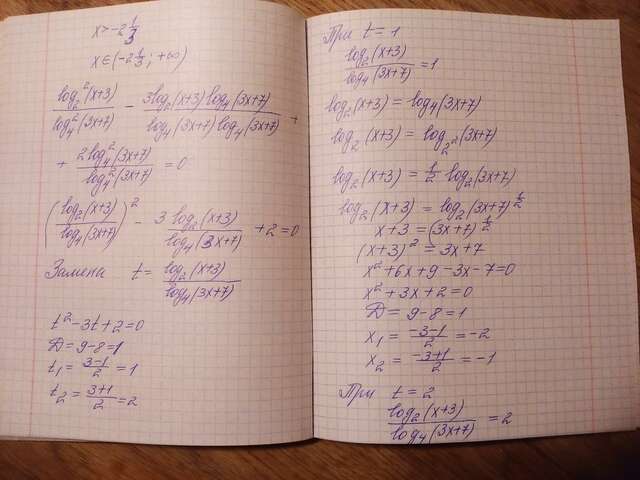 x > -2 1/3
x ∈ (-2 1/3; +∞)
log₂²(x+3)/log₄²(3x+7) - 3log₂(x+3)log₄(3x+7)/log₄(3x+7)log₄(3x+7) +
+ 2log₄²(3x+7)/log₄²(3x+7) = 0
(log₂(x+3)/log₄(3x+7))² - 3 log₂(x+3)/log₄(3x+7) + 2 = 0
Замена t = log₂(x+3)/log₄(3x+7)
t² - 3t + 2 = 0
D = 9 - 8 = 1
t₁ = (3-1)/2 = 1
t₂ = (3+1)/2 = 2
При t = 1
log₂(x+3)/log₄(3x+7) = 1
log₂(x+3) = log₄(3x+7)
log₂(x+3) = log₂²(3x+7)
log₂(x+3) = 1/2 log₂(3x+7)
log₂(x+3) = log₂(3x+7)^1/2
x+3 = (3x+7)^1/2
(x+3)² = 3x+7
x² + 6x + 9 - 3x - 7 = 0
x² + 3x + 2 = 0
D = 9 - 8 = 1
x₁ = (-3-1)/2 = -2
x₂ = (-3+1)/2 = -1
При t = 2
log₂(x+3)/log₄(3x+7) = 2